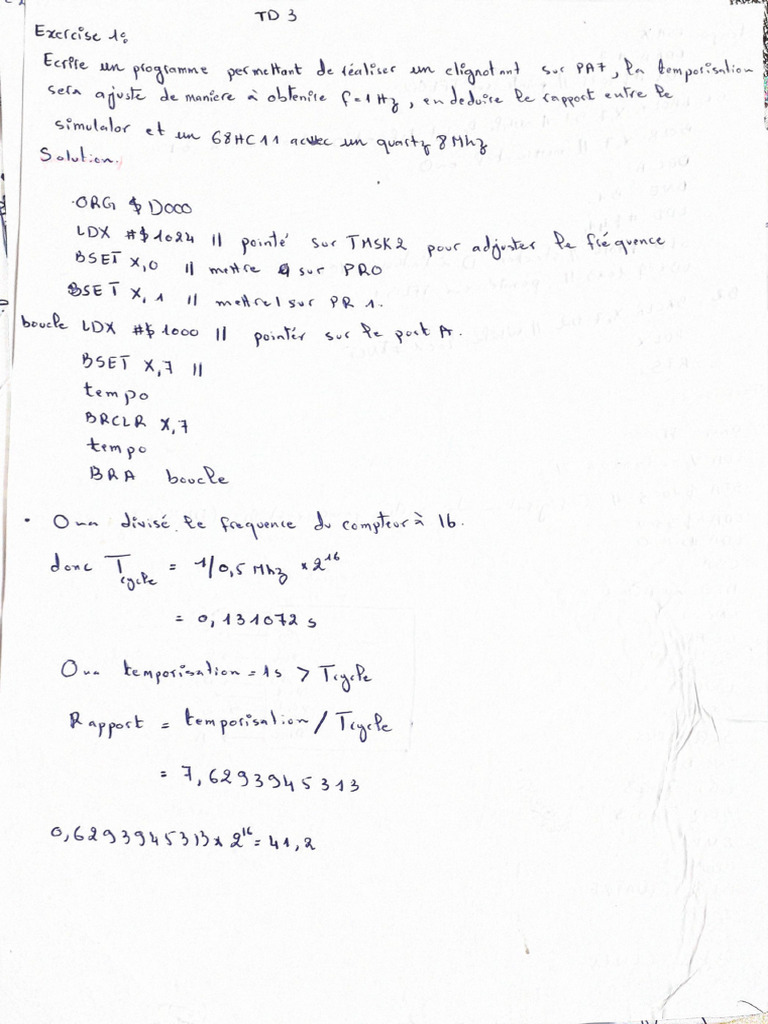 TD 3
Exercise 1:
Ecrire un programme permettant de réaliser un clignotant sur PA7, la temporisation
sera ajuste de maniere à obtenire f=1Hz, en deduire le rapport entre le
simulator et un 68HC11 avec un quartz 8Mhz
Solution.
ORG $D000
LDX #$1024 || pointé sur TMSK2 pour adjunter le fréquence
BSET X,0 || mettre sur PR0
BSET X,1 || mettre1 sur PR1.
boucle LDX #$1000 || pointér sur le port A.
BSET X,7 ||
tempo
BRCLR X,7
tempo
BRA boucle
• On a divisé le frequence du compteur à 16.
donc Tcycle = 1/0,5 Mhz × 2^16
= 0,131072 s
On a temporisation = 1s > Tcycle
Rapport = temporisation / Tcycle
= 7,62939945313
0,62939945313 × 2^16 = 41,2